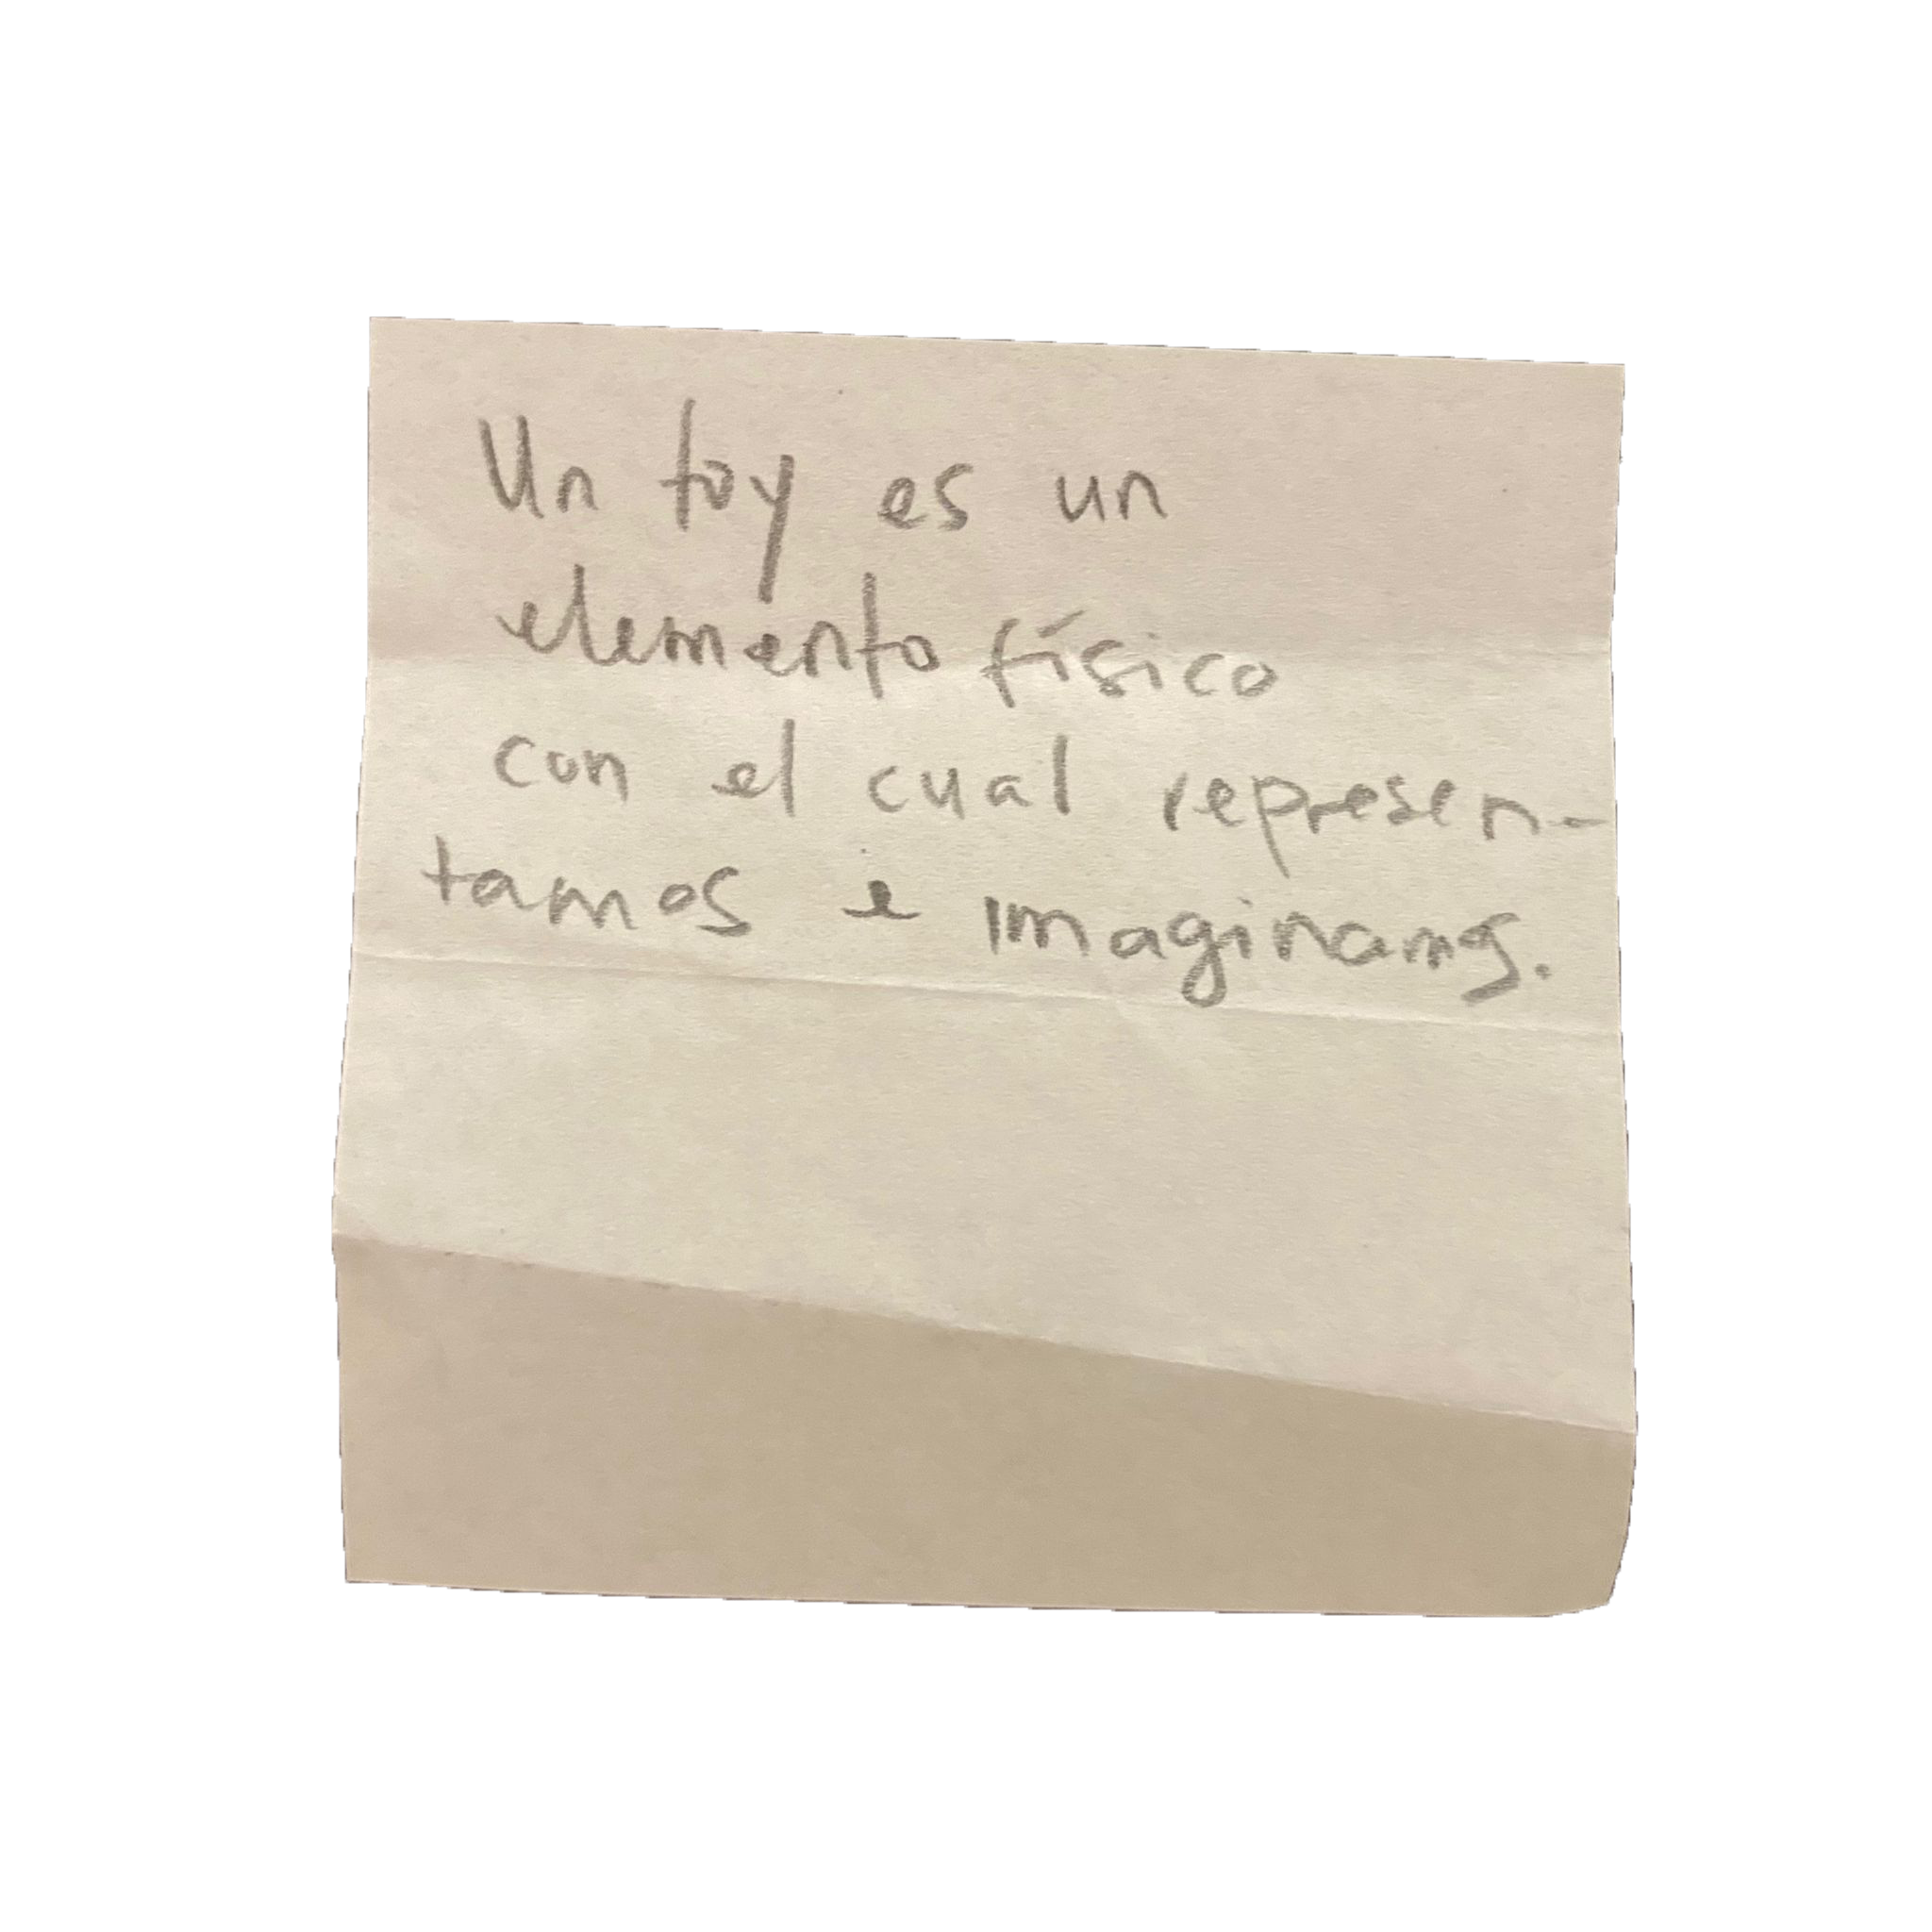 Un toy es un
elemento físico
con el cual represen-
tamos e imaginamos.